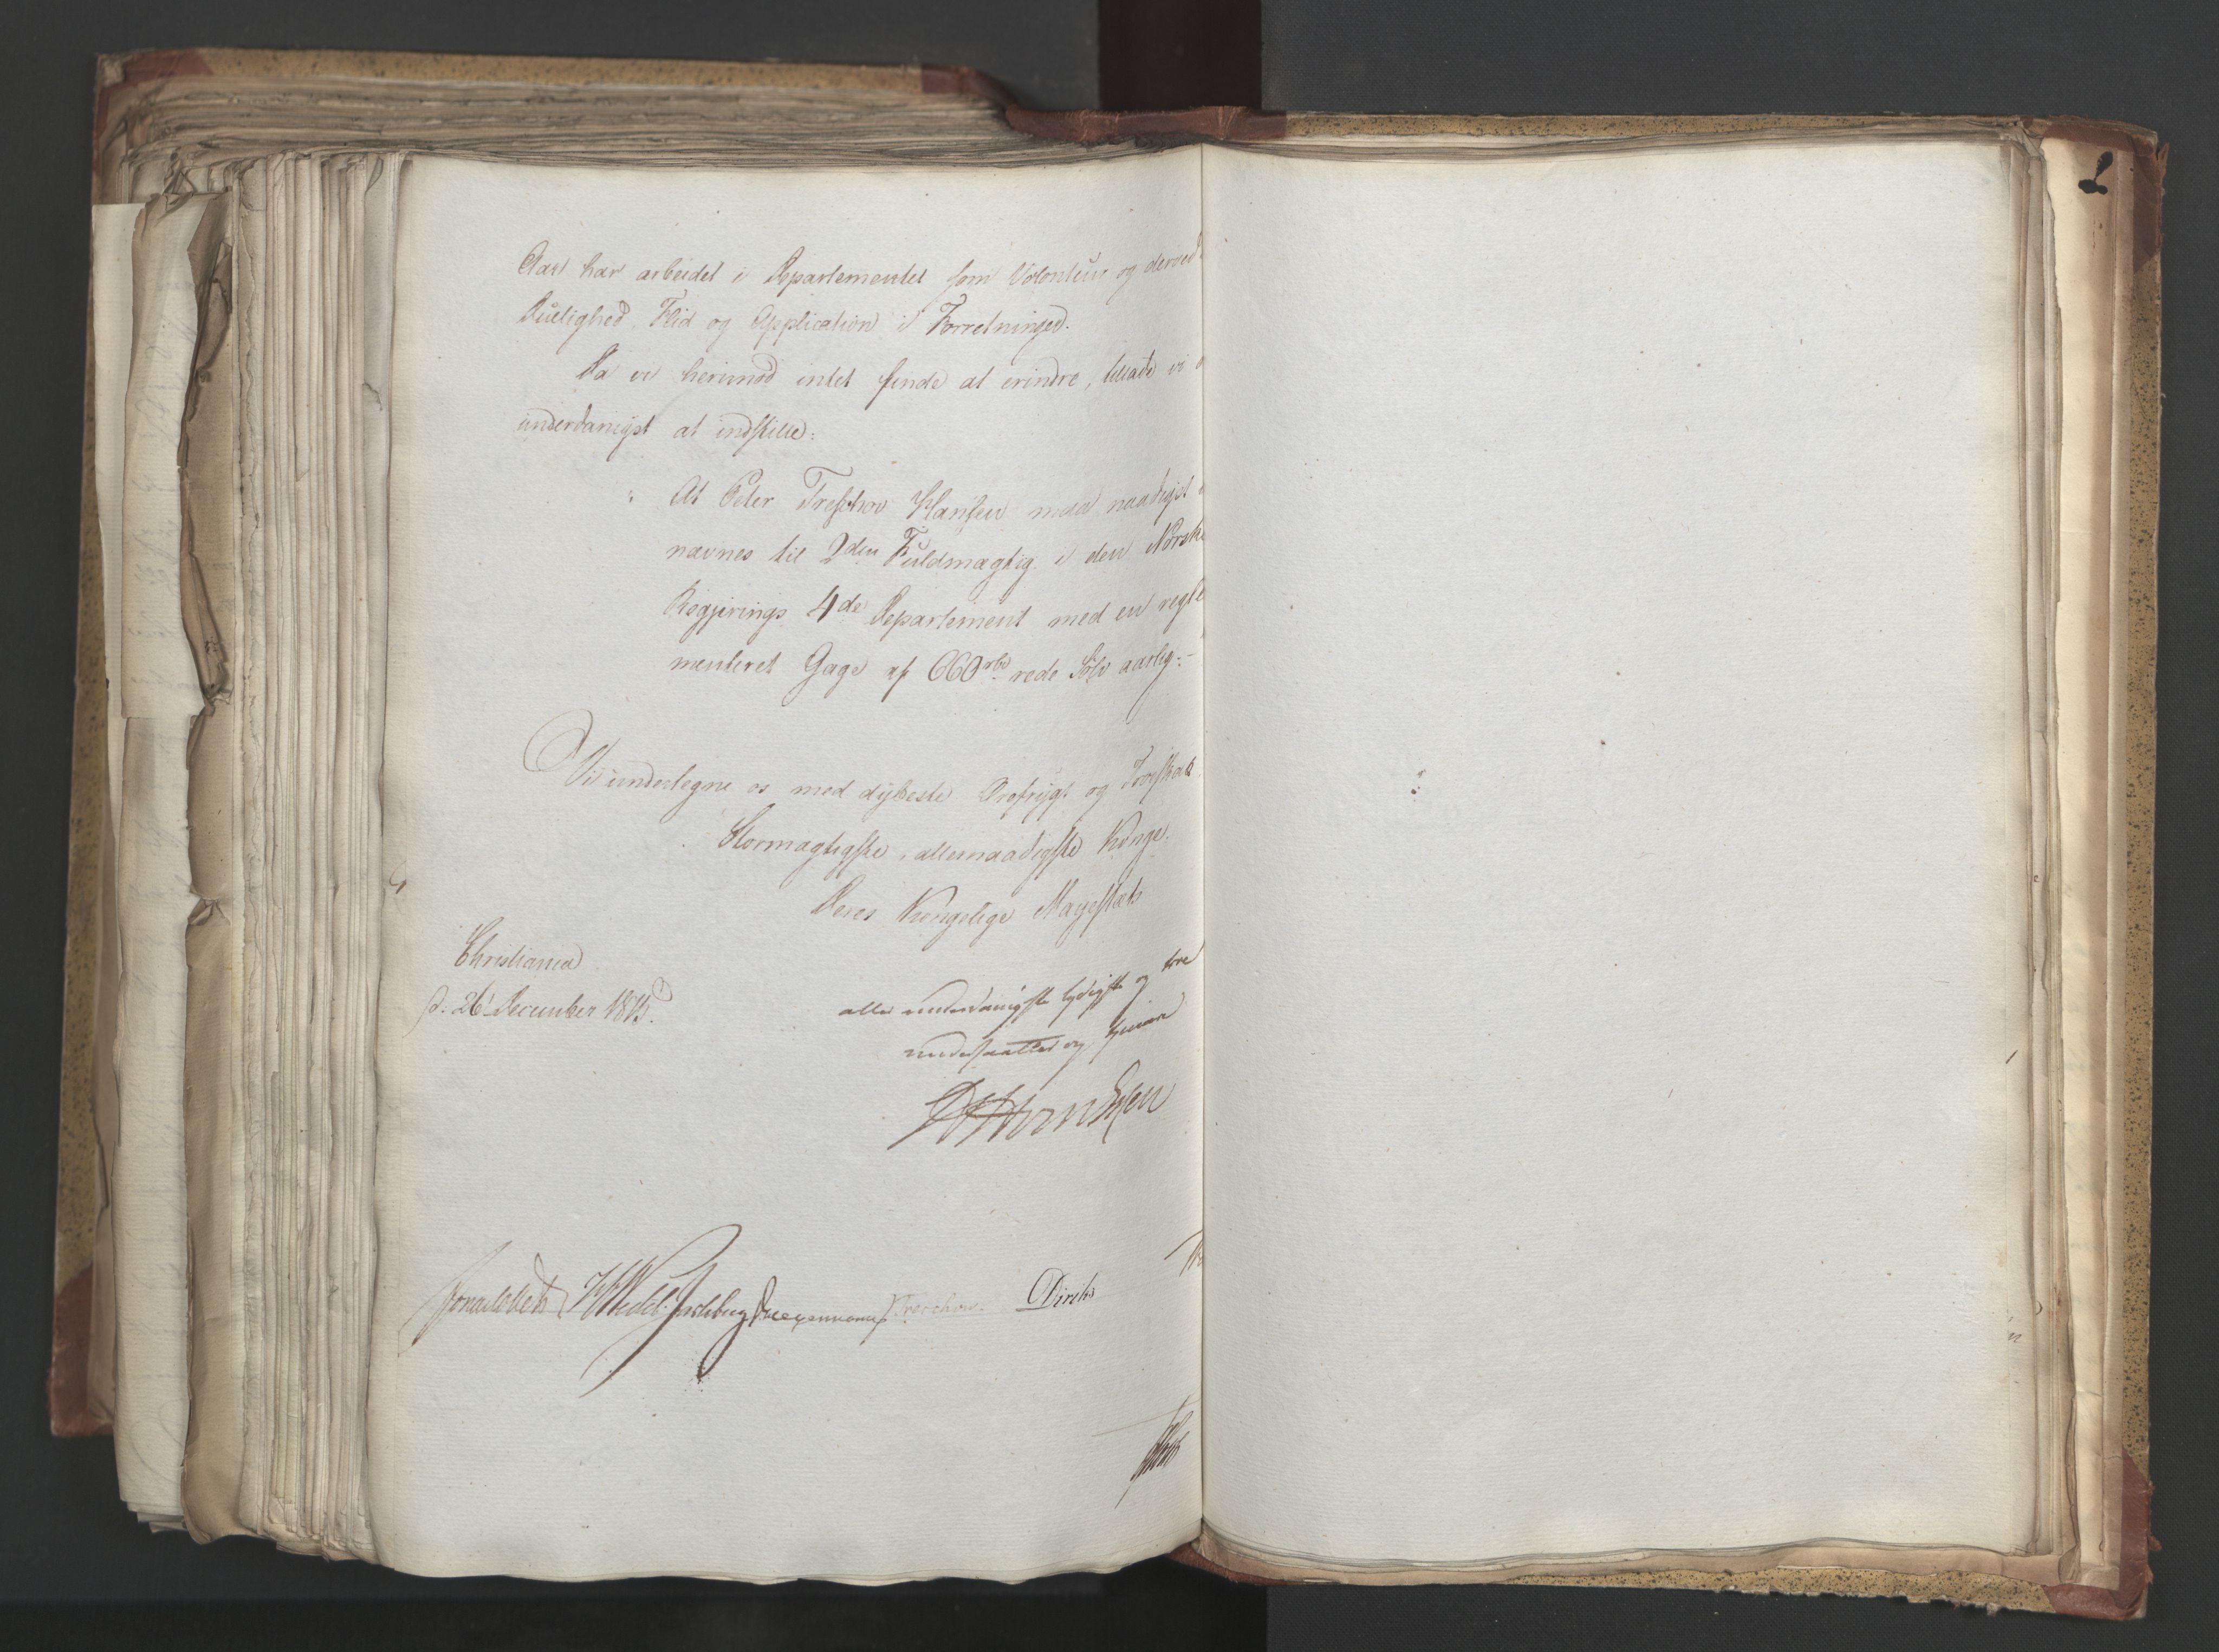 Aar har arbeidet i Departementet som Volonteur og derved
Duelighed, Flid og Application i Forretninger.
Da vi herimod intet finde at erindre, tillade vi
underdanigst at indstille:
At Peter Treschow Hansen maa naadigst
nævnes til 2den Fuldmægtig i den Norske
Regjerings 4de Departement med en regle
menteret Gage af 660 rbd. rede Sølv aarlig.
Vi undertegne os med dybeste Ærefrygt og Troeskab
Stormægtigste, allernaadigste Konge.
Deres Kongelige Mayestæts
Christiania
d. 26 December 1815.
aller underdanigste lydigste og troe
undersaatter og tienere
Sommerhielm
H Wedel Jarlsberg
Treschow.
Diriks